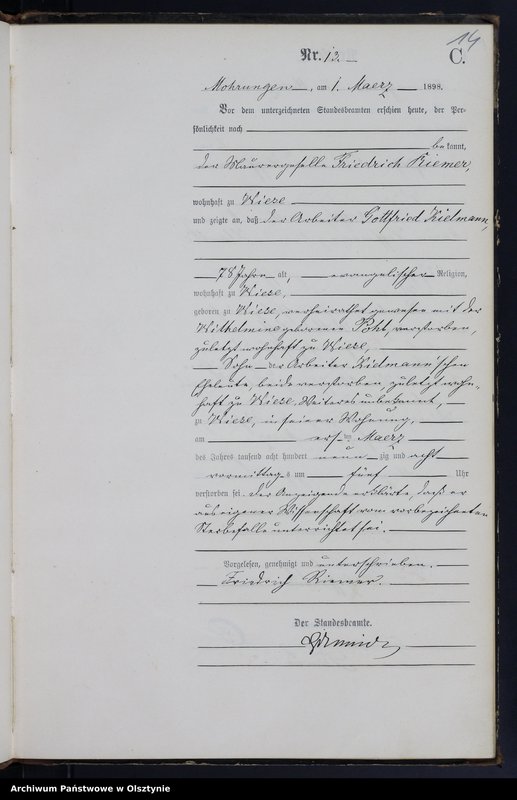 14
Nr. 13.
C.
Mohrungen, am 1. Maerz 1898.
Vor dem unterzeichneten Standesbeamten erschien heute, der Per-
sönlichkeit nach
bekannt,
der Maurergeselle Friedrich Riemer,
wohnhaft zu Wiese
und zeigte an, daß der Arbeiter Gottfried Kielmann,
78 Jahre alt, evangelischer Religion,
wohnhaft zu Wiese,
geboren zu Wiese, verheirathet gewesen mit der
Wilhelmine geborenen Poht, verstorben,
zuletzt wohnhaft zu Wiese,
Sohn der Arbeiter Kielmann'schen
Eheleute, beide verstorben, zuletzt wohn-
haft zu Wiese, Weiteres unbekannt,
zu Wiese, in seiner Wohnung,
am ersten Maerz
des Jahres tausend acht hundert neunzig und acht
vormittags um fünf Uhr
verstorben sei. Der Anzeigende erklärte, daß er
aus eigener Wissenschaft vom vorbezeichneten
Sterbefalle unterrichtet sei.
Vorgelesen, genehmigt und unterschrieben.
Friedrich Riemer.
Der Standesbeamte.
Archiwum Państwowe w Olsztynie